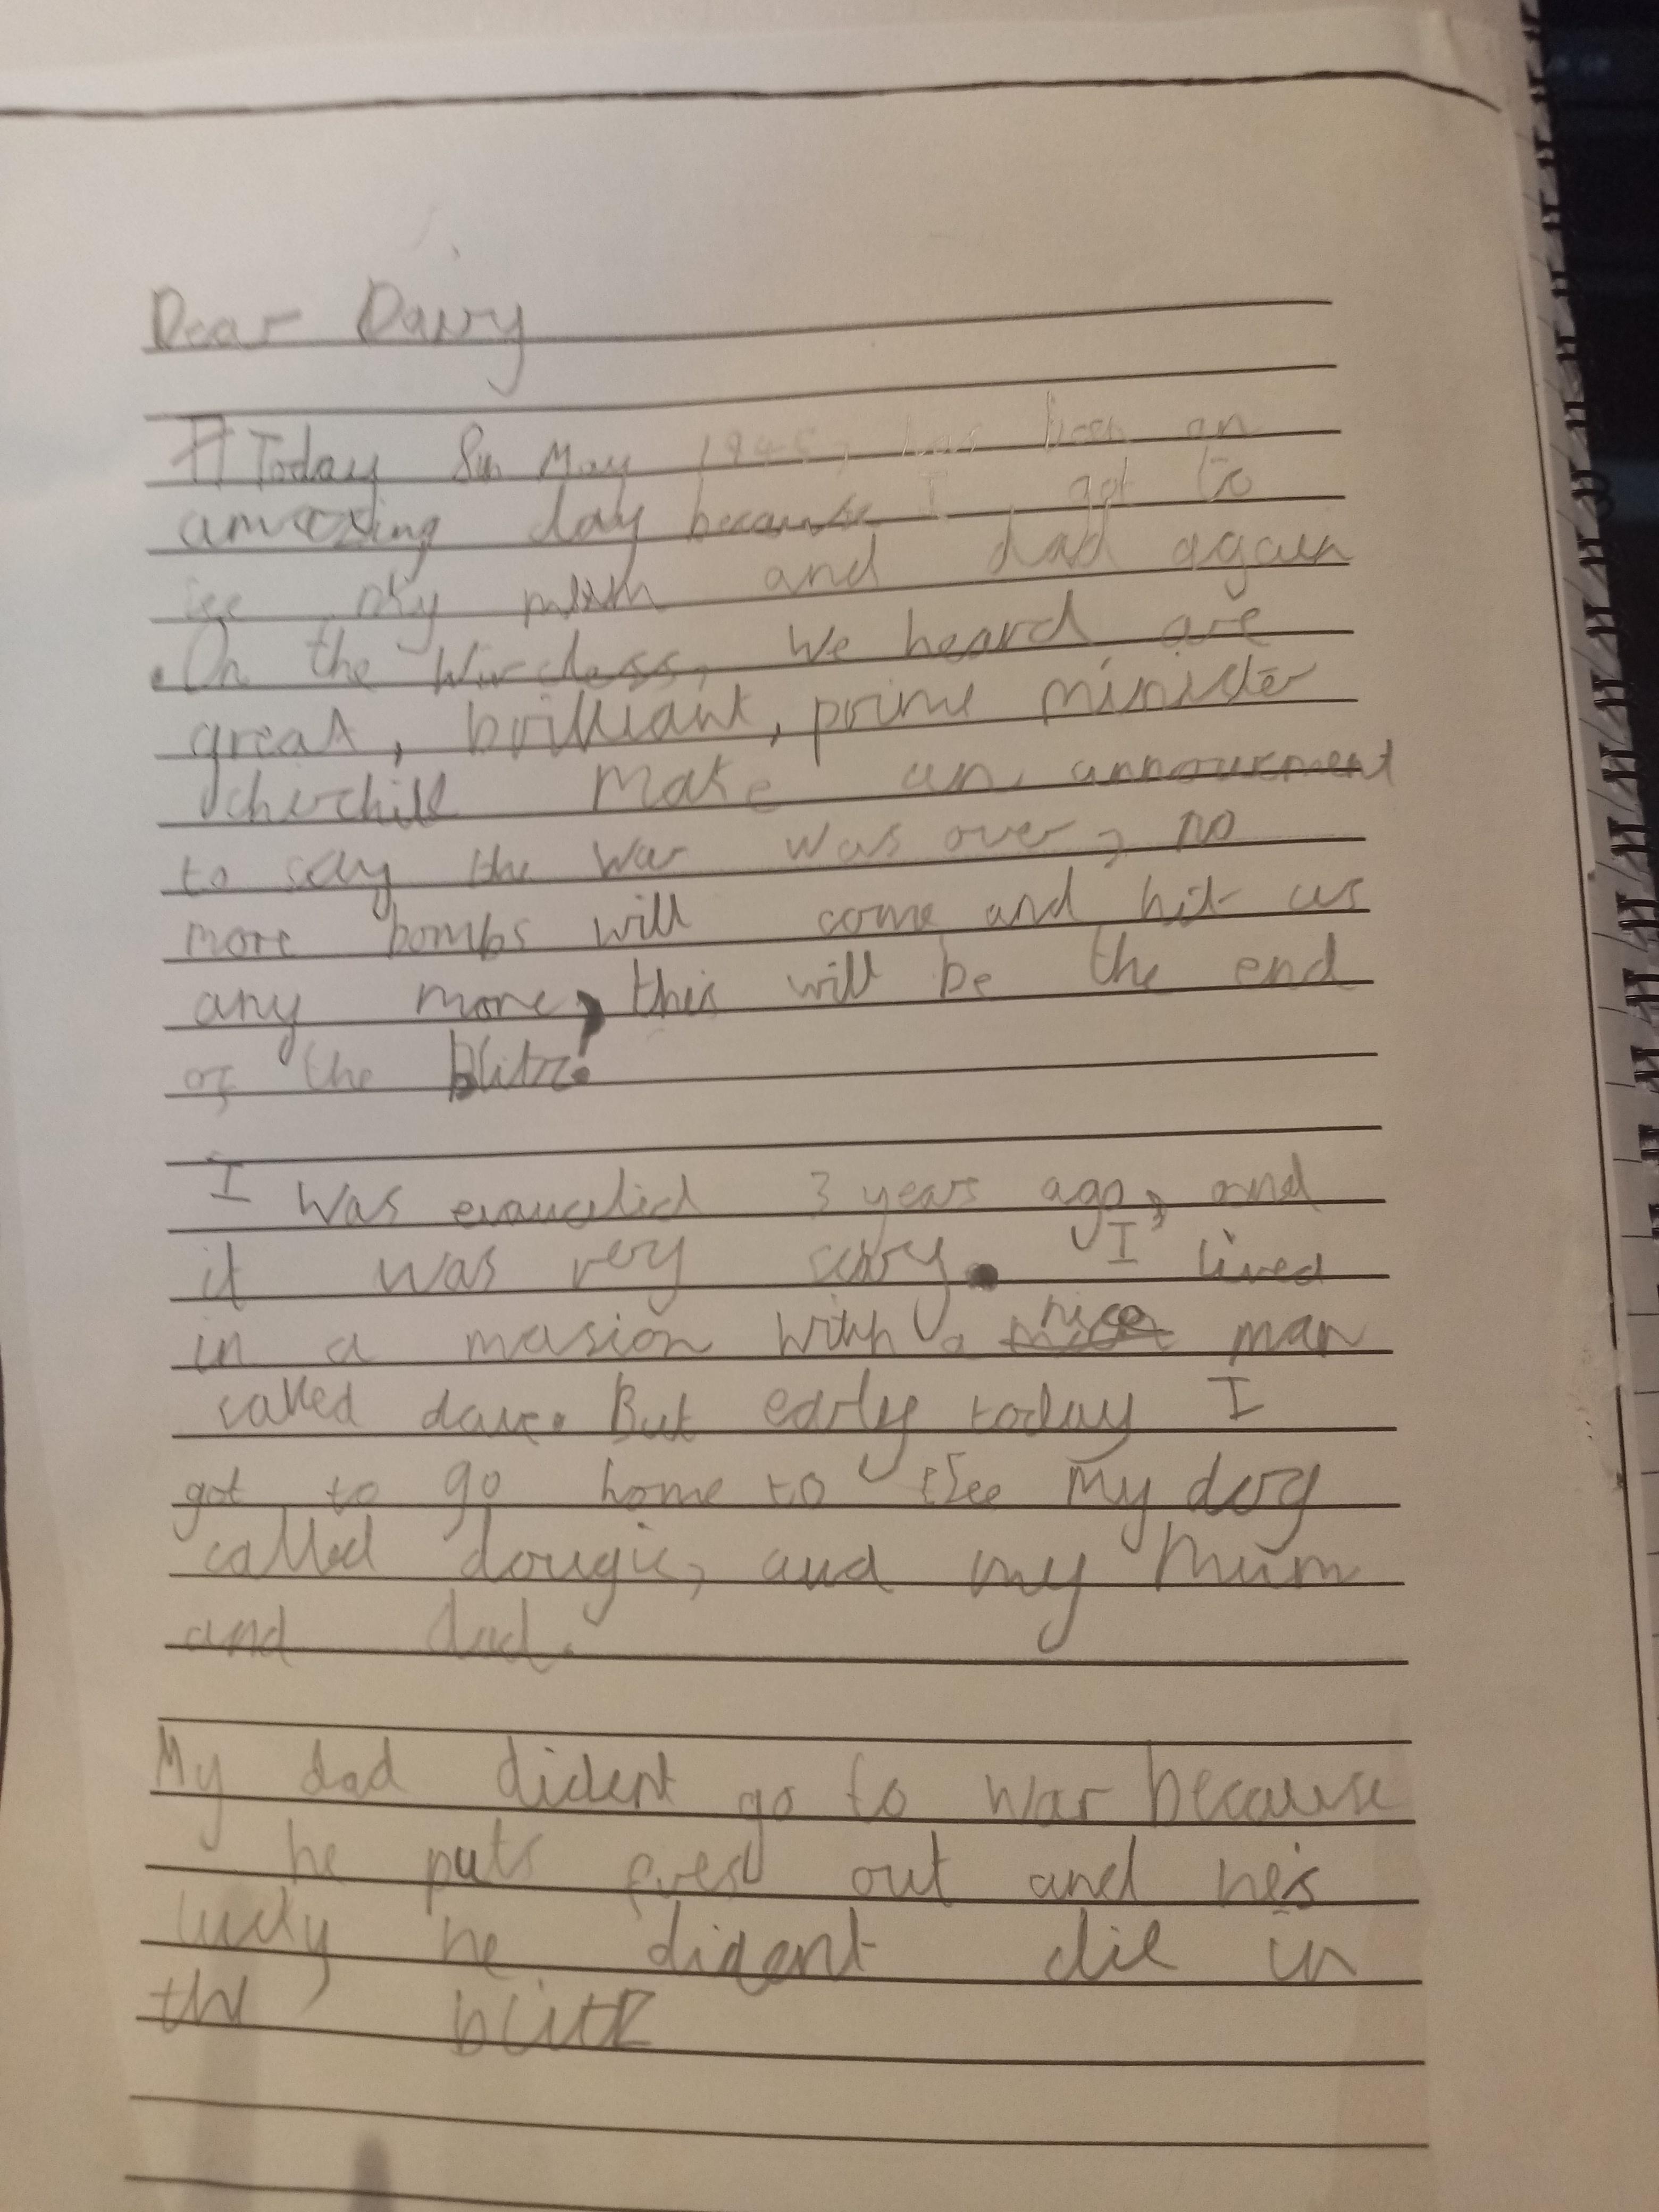 Dear Dairy
Today 8th May 1945, has been an
amazing day because I got to
see my mum and dad again
. On the Wireless, We heard are
great, brilliant, prime minister
churchill make an annourment
to say the war was over, no
more bombs will come and hit us
any more, this will be the end
of the Blitz!
I was evaucted 3 years ago, and
it was very scary. I lived
in a masion with a nice man
called dave. But early today I
got to go home to see my dog
called dougie, and my mum
and dad.
My dad dident go to war because
he puts out and he's
lucky he dident die in
the blitz